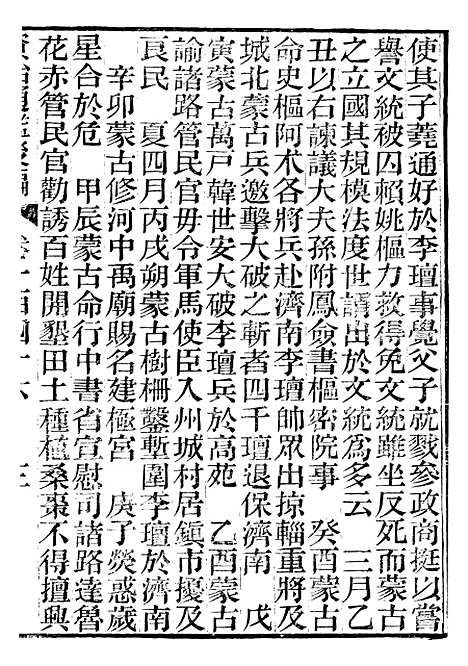 使其子蕘通好於李璮事覺父子就戮參政商挺以嘗
譽文統被囚賴姚樞力救得免文統雖坐反死而蒙古
之立國其規模法度世謂出於文統爲多云　三月乙
丑以右諫議大夫孫附鳳僉書樞密院事　癸酉蒙古
命史樞阿术各將兵赴濟南李璮帥眾出掠輜重將及
城北蒙古兵邀擊大破之斬首四千璮退保濟南　戊
寅蒙古萬戸韓世安大破李璮兵於高苑　乙酉蒙古
諭諸路管民官毋令軍馬使臣入州城村居鎮市擾及
良民　夏四月丙戌朔蒙古樹柵鑿塹圍李璮於濟南
辛卯蒙古修河中禹廟賜名建極宮　庚子熒惑歲
星合於危　甲辰蒙古命行中書省宣慰司諸路達魯
花赤管民官勸誘百姓開墾田土種植桑棗不得擅興
資治通鑑後編　卷一百四十六　三